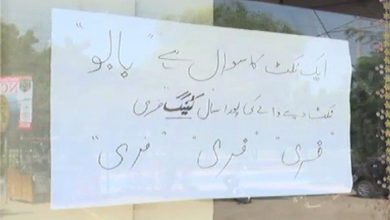 ایک ٹکٹ کا سوال ہے "بابو"
ٹکٹ دینے والے کی پورا سال ٹینگ فری
"فری" "فری" "فری"